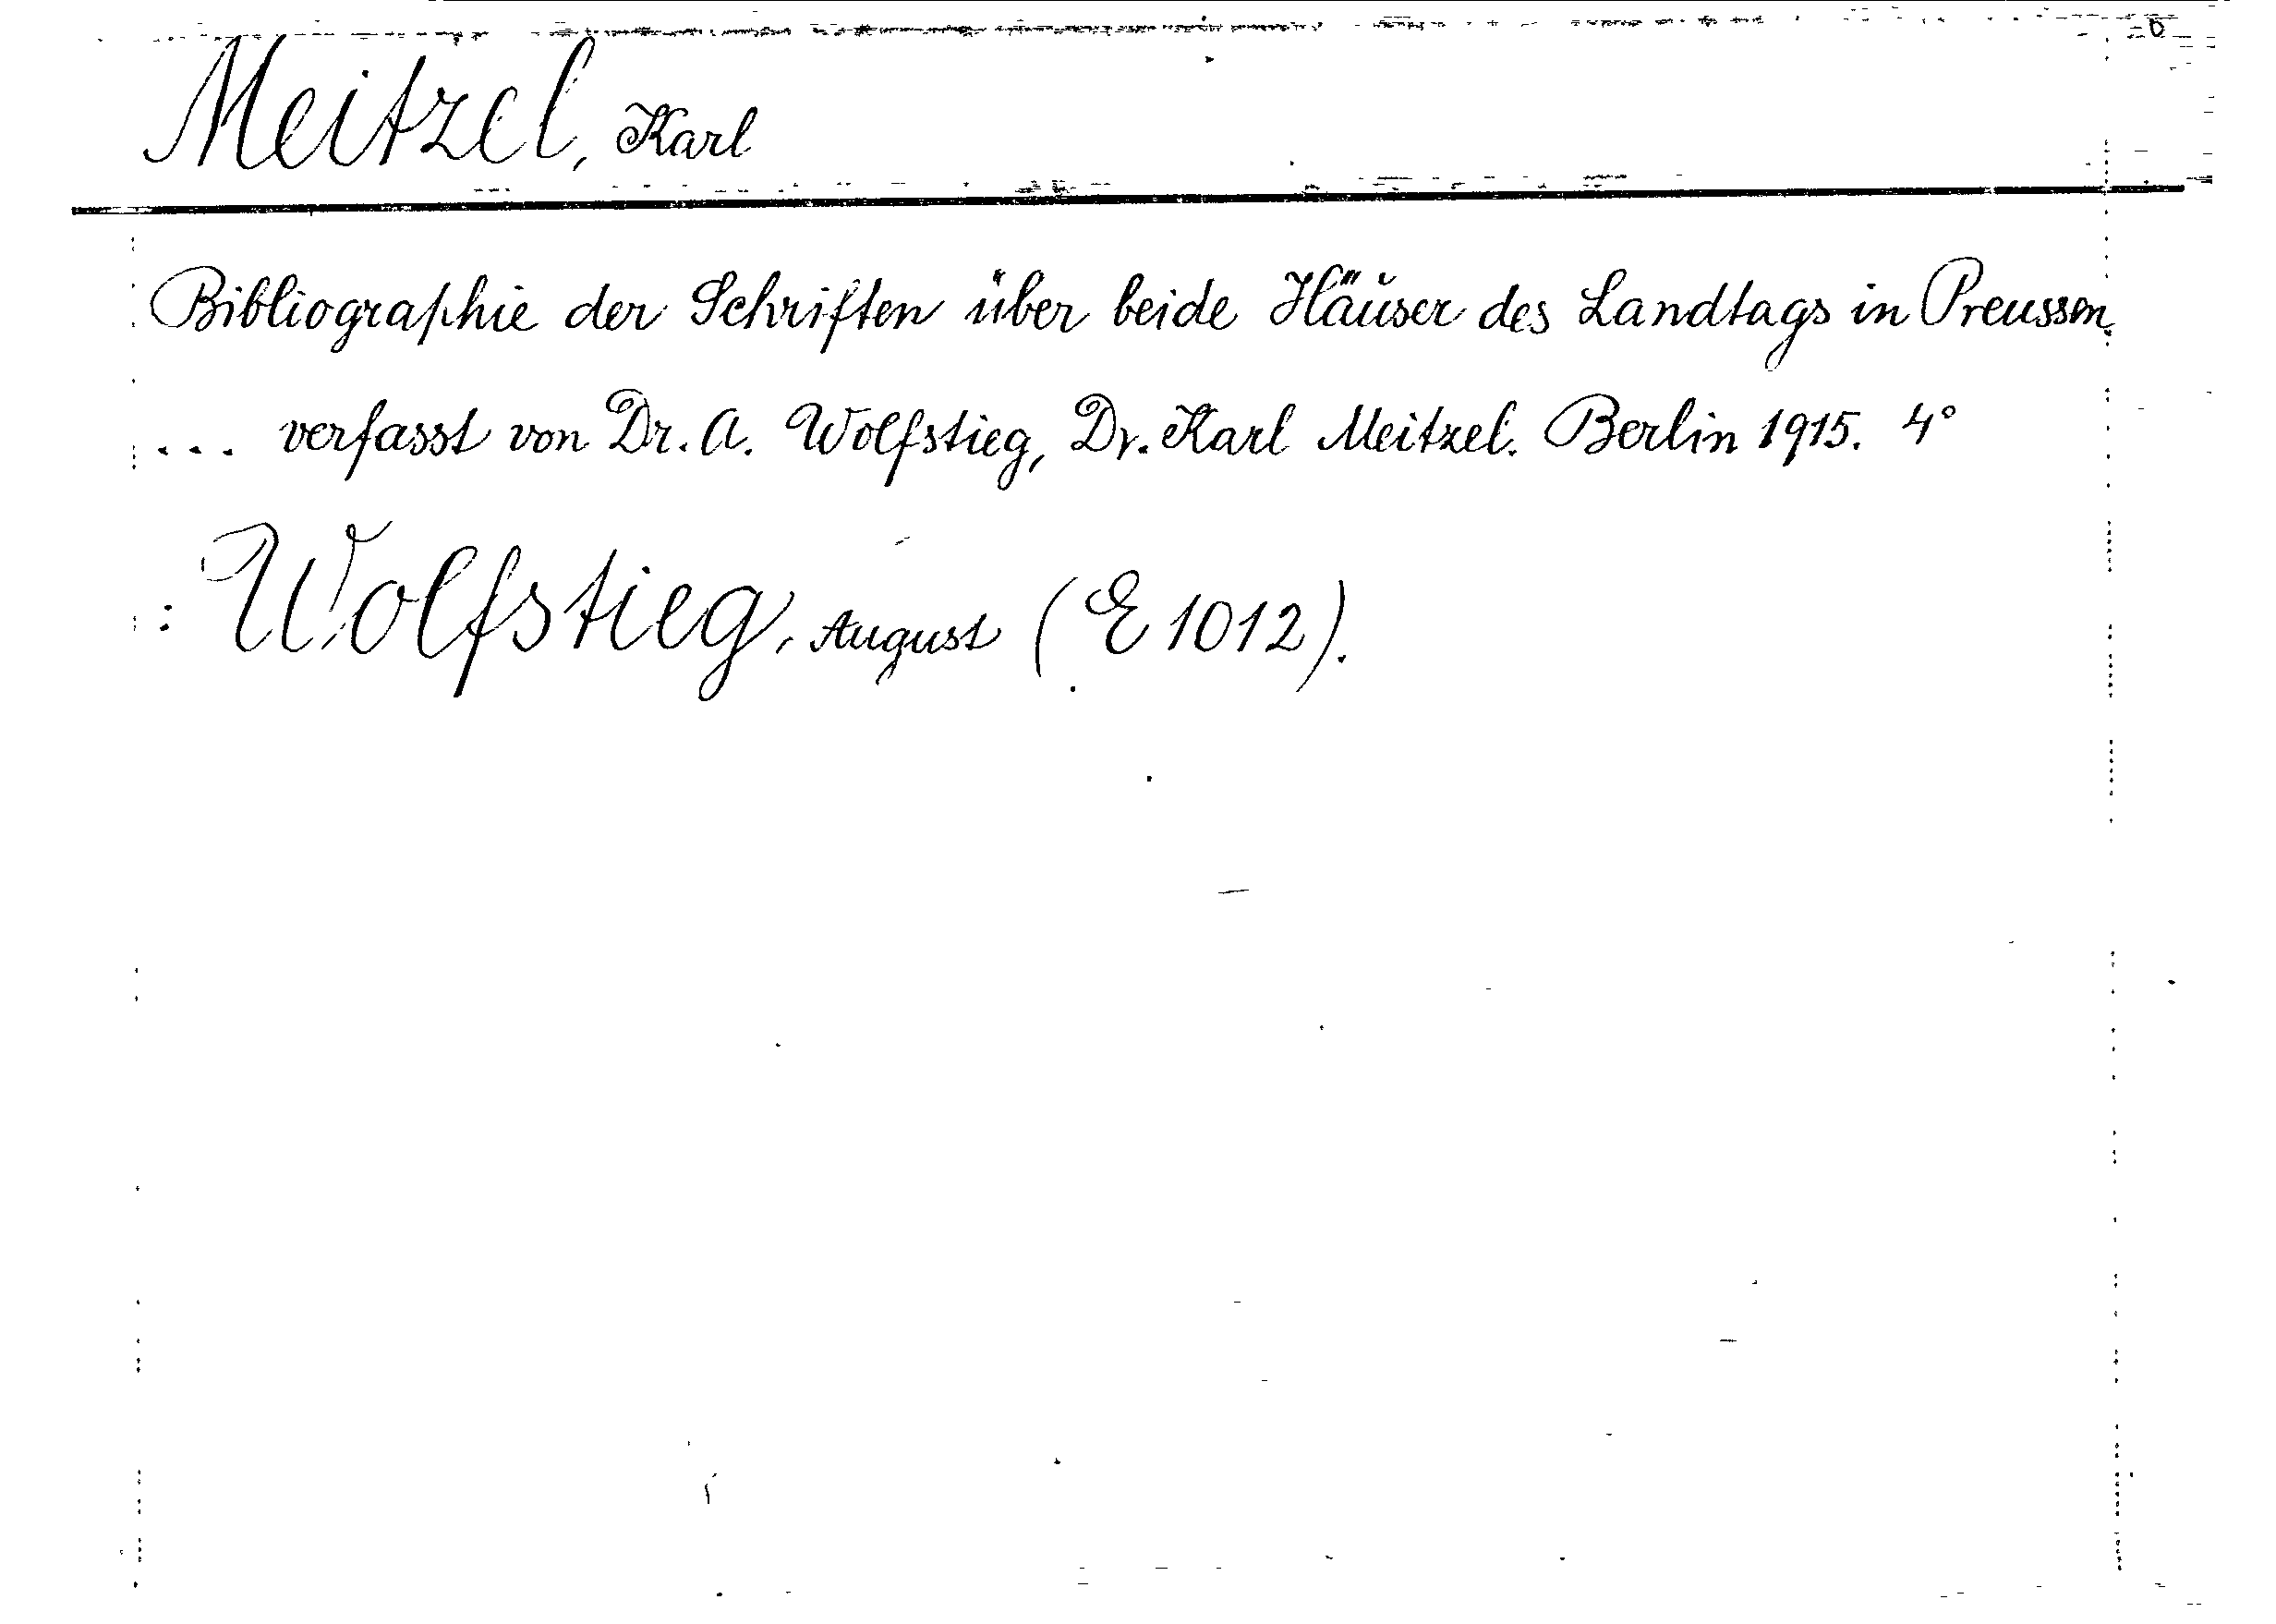 Meitzel, Karl
Bibliographie der Schriften über beide Häuser des Landtags in Preussen.
... verfasst von Dr. A. Wolfstieg, Dr. Karl Meitzel. Berlin 1915. 4°
: Wolfstieg, August (E 1012).